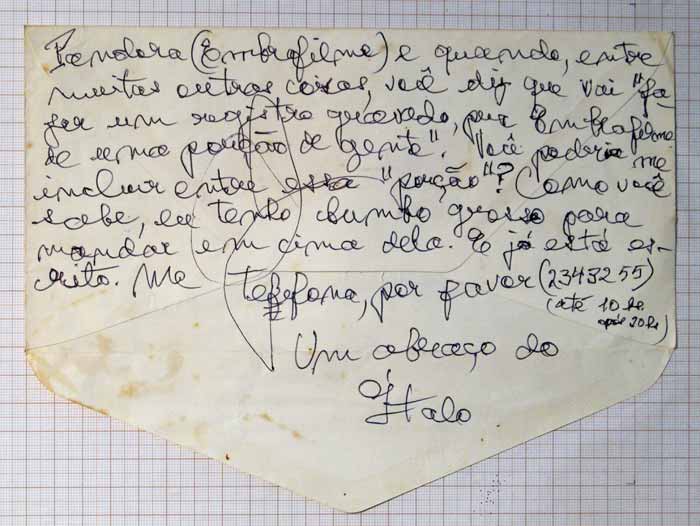 Pandora (Embrafilme) e quando, entre
muitas outras coisas, você diz que vai "fa-
zer um registro gravado, pra Embrafilme
de uma porção de gente". Você poderia me
incluir entre essa "porção"? Como você
sabe, eu tenho chumbo grosso para
mandar em cima dela. E já está es-
crito. Me telefona, por favor (2343255)
(até 10 hs.
após 20 hs)
Um abraço do
Ítalo